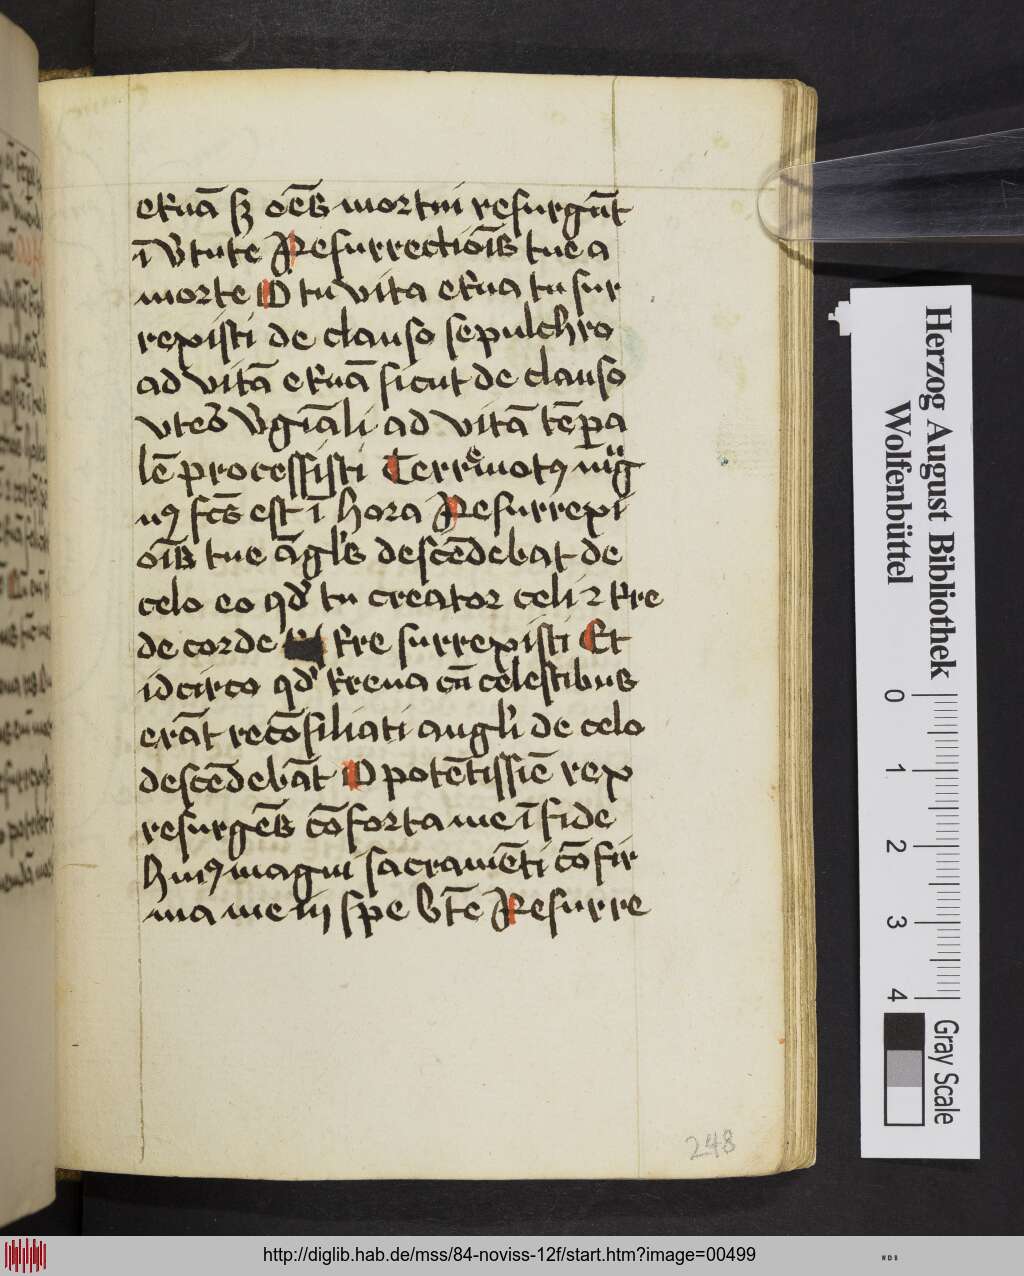 et̄nā sꝫ oēs mortui resurgūt
ī v̓tute Resurrectiōis tue a
morte O tu vita et̓na tu sur
rexisti de clauso sepulchro
ad vitā et̓nā sicut de clauso
vteͦ v̓gīali ad vitā tēꝑa
lē processisti Terremotꝰ mag
nꝰ fc̄s est ī hora Resurrexi
oīs tue āgl̓s descēdebat de
celo eo qd̓ tu creator celi ⁊ t̓re
de corde t̓re surrexisti Et
idcirco qd̓ t̓rena cū celestibus
erāt recōsiliati angl̓i de celo
descēdebāt O potētissīe rex
resurgēs cōforta me ī fide
huiꝰ magni sacramēti cōfir
ma me in spe v̓tē Resurre
248
Herzog August Bibliothek
Wolfenbüttel
0
1
2
3
4
Gray Scale
http://diglib.hab.de/mss/84-noviss-12f/start.htm?image=00499